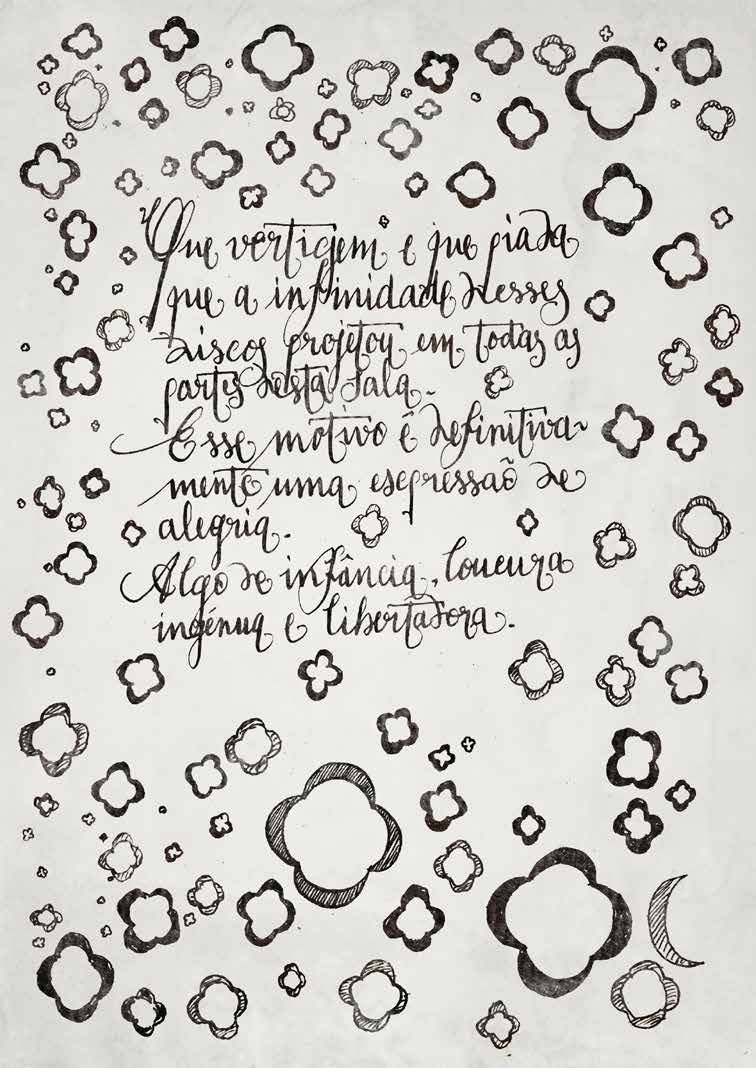 Que vertigem e que piada
que a infinidade desses
discos projetou em todas as
partes desta sala.
Esse motivo é definitiva-
mente uma expressão de
alegria.
Algo de infância, loucura
ingénua e libertadora.